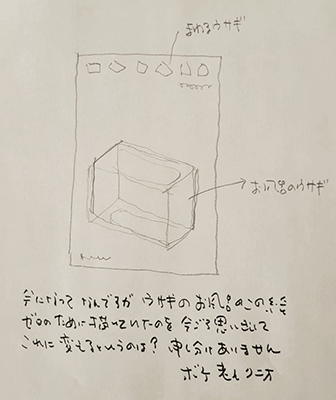 まわるウサギ
お風呂のウサギ
今になって なんですが ウサギの お風呂のこの絵
ゼロのために描いていたのを 今ごろ思い出して
これに変えるというのは? 申し分けありません
ボケ老人 クニオ